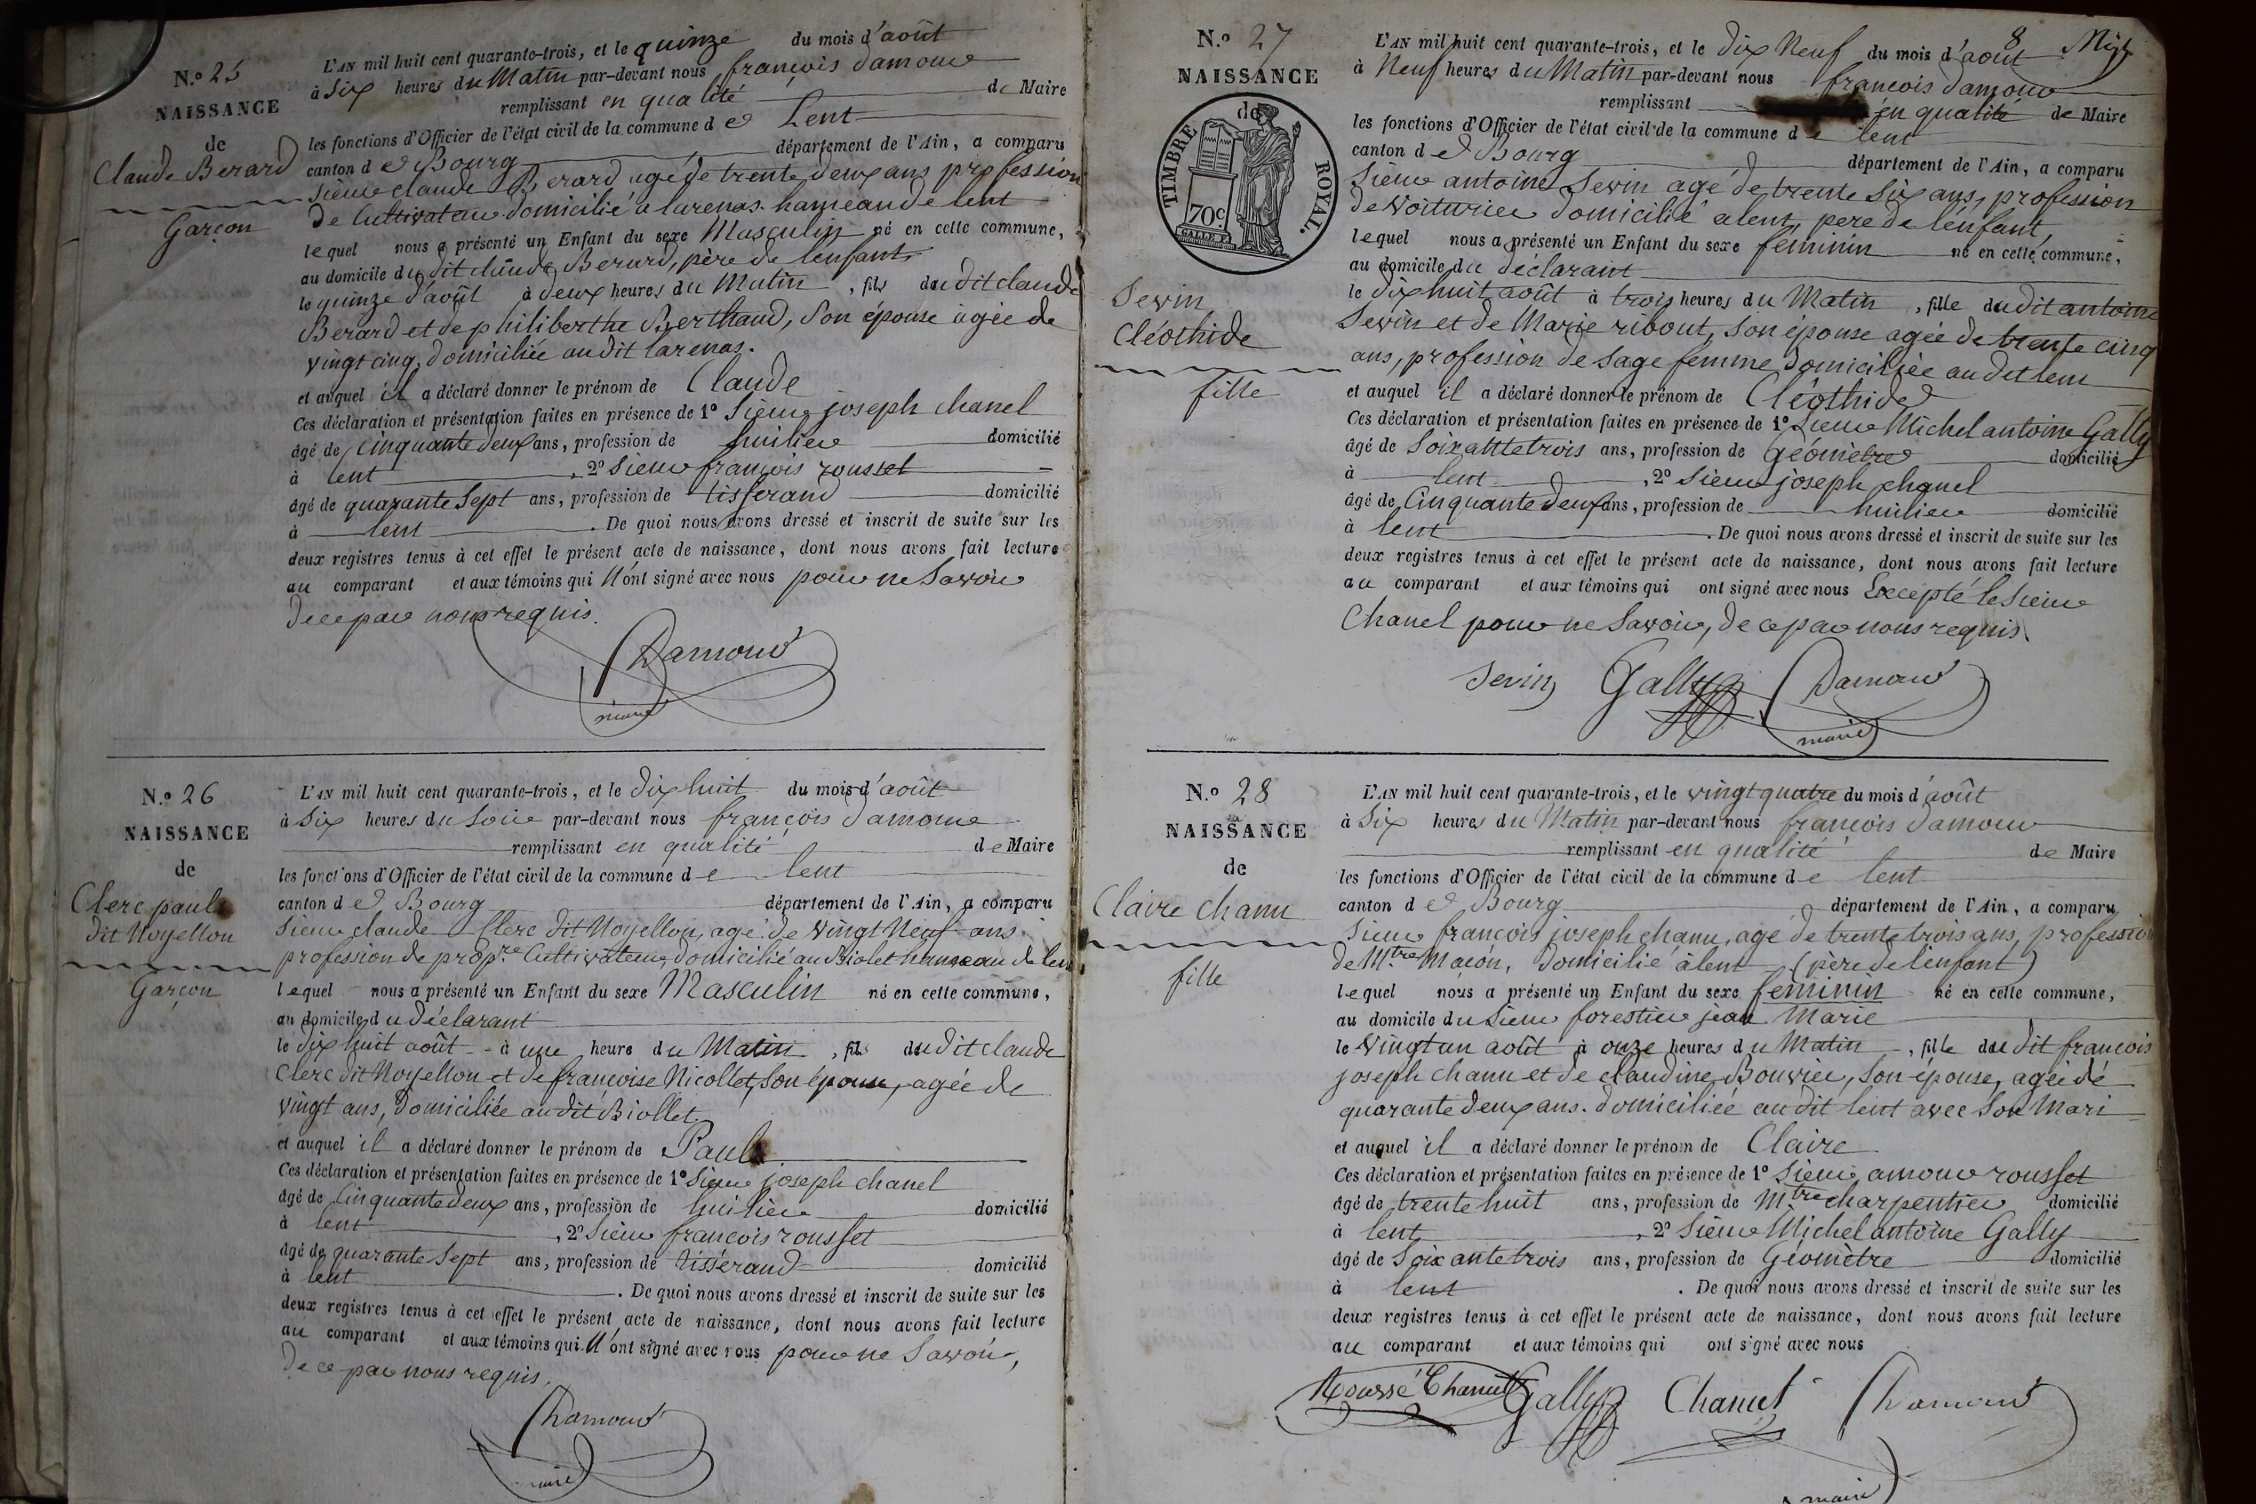 N.º 25
NAISSANCE
de
Claude Berard
Garçon
L'AN mil huit cent quarante-trois, et le quinze du mois d'août
à Six heures du Matin par-devant nous françois Damour
remplissant en qualité de Maire
les fonctions d'Officier de l'état civil de la commune de Lent
canton de Bourg département de l'Ain, a comparu
Sieur claude Berard agé de trente deux ans profession
de Cultivateur domicilié a larenas hameau de lent
lequel nous a présenté un Enfant du sexe Masculin né en cette commune,
au domicile du dit claude Berard, père de l'enfant,
le quinze d'août à deux heures du Matin, fils du dit claude
Berard et de philiberthe Berthaud, Son épouse agée de
vingt cinq, domiciliée au dit larenas.
et auquel il a déclaré donner le prénom de Claude
Ces déclaration et présentation faites en présence de 1º Sieur joseph chanel
âgé de Cinquante deux ans, profession de huilier domicilié
à lent, 2º Sieur françois rousset
âgé de quarante Sept ans, profession de tisserand domicilié
à lent. De quoi nous avons dressé et inscrit de suite sur les
deux registres tenus à cet effet le présent acte de naissance, dont nous avons fait lecture
au comparant et aux témoins qui n'ont signé avec nous pour ne Savoir
de ce par nous requis.
Damour
maire
N.º 26
NAISSANCE
de
Clerc paul
dit Noyellon
Garçon
L'AN mil huit cent quarante-trois, et le dix huit du mois d'août
à Six heures du Soir par-devant nous françois Damour
remplissant en qualité de Maire
les fonctions d'Officier de l'état civil de la commune de lent
canton de Bourg département de l'Ain, a comparu
Sieur claude Clerc dit Noyellon, agé de vingt Neuf ans
profession de prop.re Cultivateur, domicilié au Biolet hameau de lent
lequel nous a présenté un Enfant du sexe Masculin né en cette commune,
au domicile du déclarant
le dix huit août à une heure du Matin, fils du dit claude
Clerc dit Noyellon et de françoise Nicollet, Son épouse, agée de
vingt ans, domiciliée au dit Biollet.
et auquel il a déclaré donner le prénom de Paul
Ces déclaration et présentation faites en présence de 1º Sieur joseph chanel
âgé de Cinquante deux ans, profession de huilier domicilié
à lent, 2º Sieur françois rousset
âgé de quarante Sept ans, profession de tisserand domicilié
à lent. De quoi nous avons dressé et inscrit de suite sur les
deux registres tenus à cet effet le présent acte de naissance, dont nous avons fait lecture
au comparant et aux témoins qui n'ont signé avec nous pour ne Savoir,
de ce par nous requis.
Damour
maire
8
N.º 27
NAISSANCE
de
TIMBRE ROYAL.
70c
Sevin
Cléothide
fille
L'AN mil huit cent quarante-trois, et le dix Neuf du mois d'août
à Neuf heures du Matin par-devant nous françois Damour
remplissant en qualité de Maire
les fonctions d'Officier de l'état civil de la commune de lent
canton de Bourg département de l'Ain, a comparu
Sieur antoine Sevin agé de trente Six ans, profession
de voiturier domicilié a lent, père de l'enfant,
lequel nous a présenté un Enfant du sexe féminin né en cette commune,
au domicile du déclarant
le dix huit août à trois heures du Matin, fille du dit antoine
Sevin et de Marie ribout, Son épouse agée de trente cinq
ans, profession de Sage femme domiciliée au dit lent
et auquel il a déclaré donner le prénom de Cléothide
Ces déclaration et présentation faites en présence de 1º Sieur Michel antoine Gally
âgé de Soixante trois ans, profession de Géomètre domicilié
à lent, 2º Sieur joseph chanel
âgé de Cinquante deux ans, profession de huilier domicilié
à lent. De quoi nous avons dressé et inscrit de suite sur les
deux registres tenus à cet effet le présent acte de naissance, dont nous avons fait lecture
au comparant et aux témoins qui ont signé avec nous Excepté le Sieur
Chanel pour ne Savoir, de ce par nous requis
Sevin Gally Damour
maire
N.º 28
NAISSANCE
de
Claire chanu
fille
L'AN mil huit cent quarante-trois, et le vingt quatre du mois d'août
à Six heures du Matin par-devant nous françois Damour
remplissant en qualité de Maire
les fonctions d'Officier de l'état civil de la commune de lent
canton de Bourg département de l'Ain, a comparu
Sieur françois joseph chanu, agé de trente trois ans, profession
de M.tre Maçon, domicilié à lent (père de l'enfant)
lequel nous a présenté un Enfant du sexe féminin né en cette commune,
au domicile du Sieur forestier jean Marie
le vingt un août à onze heures du Matin, fille du dit françois
joseph chanu et de claudine Bouvier, Son épouse, agée de
quarante deux ans. domiciliée au dit lent avec Son Mari
et auquel il a déclaré donner le prénom de Claire
Ces déclaration et présentation faites en présence de 1º Sieur amour rousset
âgé de trente huit ans, profession de M.tre charpentier domicilié
à lent, 2º Sieur Michel antoine Gally
âgé de Soixante trois ans, profession de Géomètre domicilié
à lent. De quoi nous avons dressé et inscrit de suite sur les
deux registres tenus à cet effet le présent acte de naissance, dont nous avons fait lecture
au comparant et aux témoins qui ont signé avec nous
Gally Damour
maire